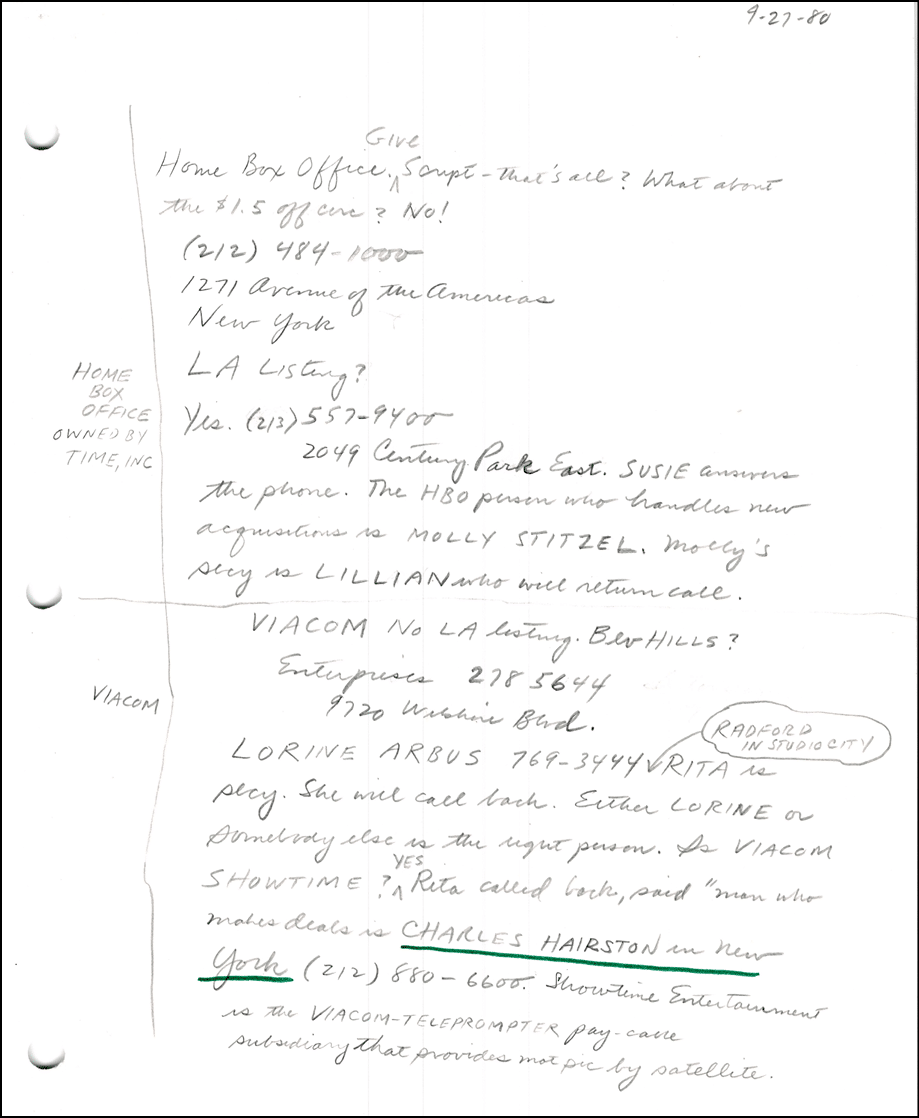 9-27-80
Give
Home Box Office. Script - that's all? What about
the $1.5 off circ? No!
(212) 484-1000
1271 Avenue of the Americas
New York
LA Listing?
Yes. (213) 557-9400
2049 Century Park East. SUSIE answers
the phone. The HBO person who handles new
acquisitions is MOLLY STITZEL. Molly's
secy is LILLIAN who will return call.
HOME
BOX
OFFICE
OWNED BY
TIME, INC
VIACOM No LA listing. Bev HILLS?
Enterprises 278 5644
9720 Wilshire Blvd.
VIACOM
RADFORD
IN STUDIO CITY
LORINE ARBUS 769-3444 RITA is
secy. She will call back. Either LORINE or
somebody else is the right person. Is VIACOM
YES
SHOWTIME? Rita called back, said "man who
makes deals is CHARLES HAIRSTON in New
York (212) 880-6600. Showtime Entertainment
is the VIACOM-TELEPROMPTER pay-
subsidiary that provides mot pic by satellite.